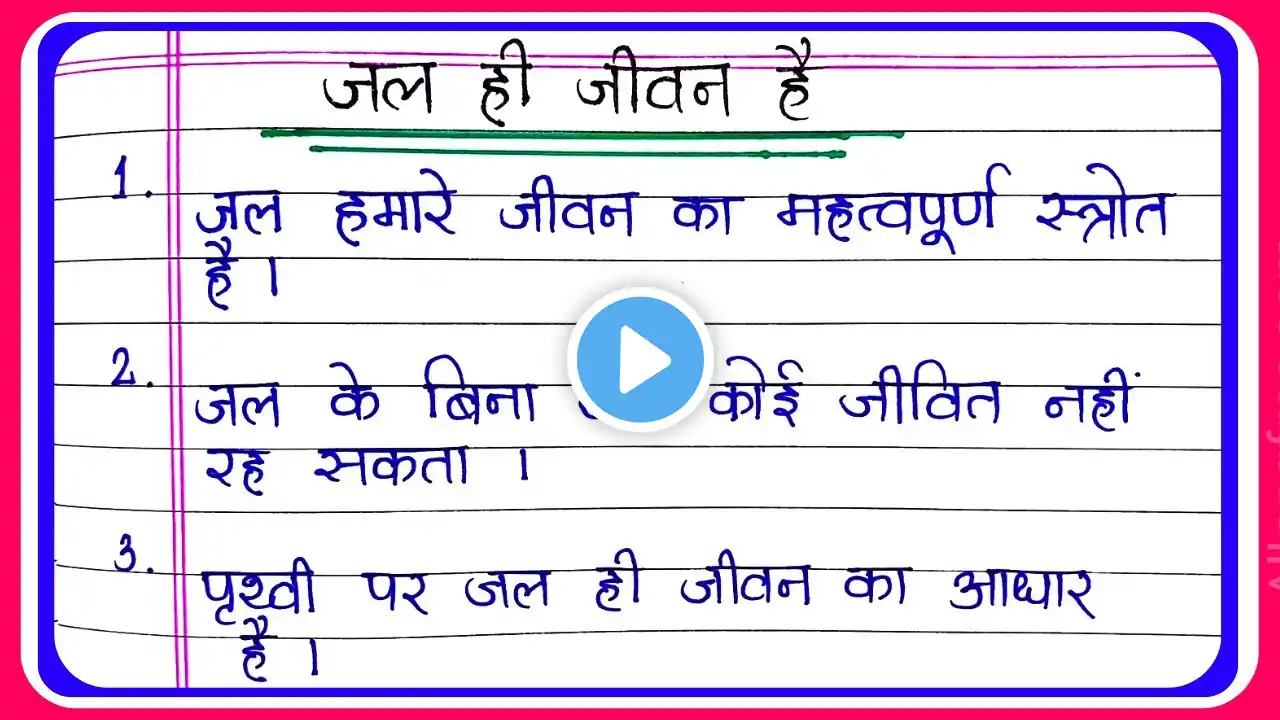 जल ही जीवन है
1. जल हमारे जीवन का महत्वपूर्ण स्त्रोत
है ।
2. जल के बिना कोई जीवित नहीं
रह सकता ।
3. पृथ्वी पर जल ही जीवन का आधार
है ।